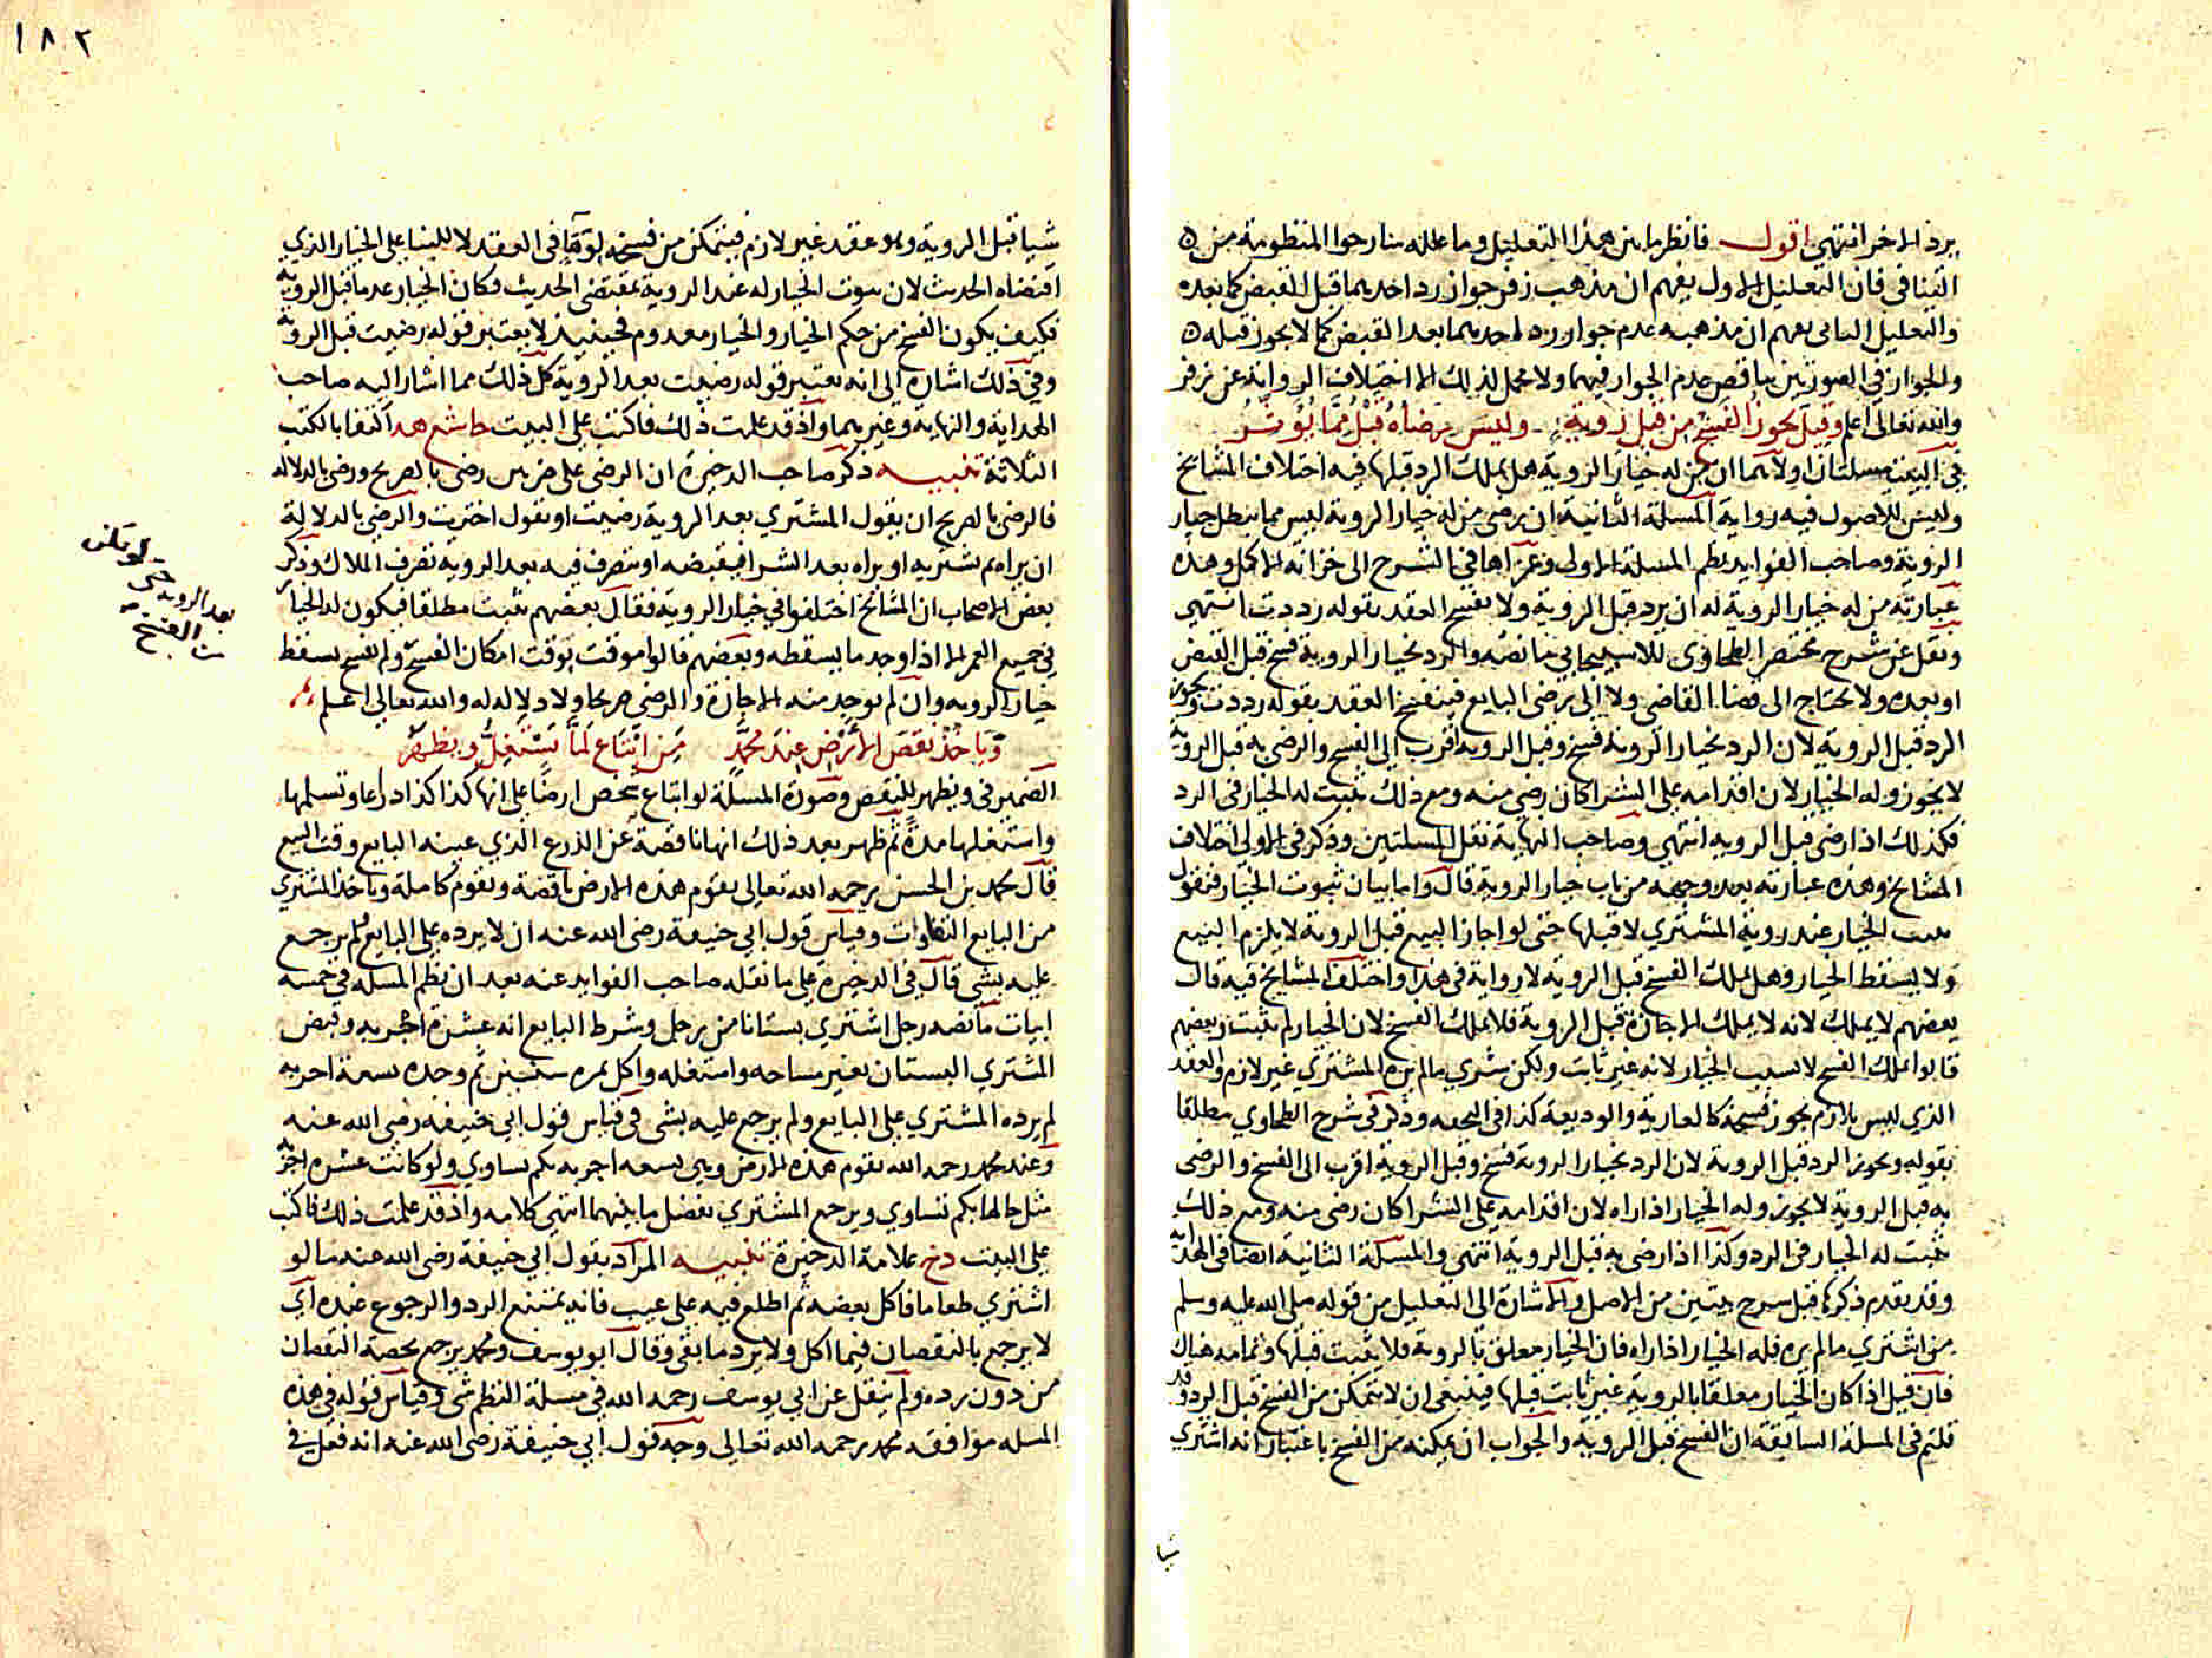 يرد الاخر انتهي اقول فانظر ما بين هذا التعليل وما علله شارحوا المنظومة من
التنافي فان التعليل الاول يفهم ان مذهب زفر جواز رد احدهما قبل القبض كما بعده
والتعليل الثاني يفهم ان مذهبه عدم جواز رد احدهما بعد القبض كما لا يجوز قبله
والجواز في الصورتين يناقض عدم الجواز فيهما ولا محمل لذلك الا اختلاف الرواية عن زفر
والله تعالى اعلم وقيل يجوز الفسخ من قبل روية وليس رضاه قبل مما يوثر
في البيت مسلتان اولاهما ان من له خيار الروية هل يملك الرد قبلها فيه اختلاف المشايخ
وليس للاصول فيه رواية المسلة الثانية ان رضى من له خيار الروية ليس مما يبطل خيار
الروية وصاحب الفوايد نظم المسلة الاولى وعزاها في الشرح الى خزانة الاكمل وهذه
عبارته من له خيار الروية له ان يرد قبل الروية ولا يفسخ العقد بقوله رددت انتهى
ونقل عن شرح مختصر الطحاوى للاسبيجابي ما نصه والرد بخيار الروية فسخ قبل القبض
او بعده ولا يحتاج الى قضا القاضي ولا الى رضى البايع فينفسخ العقد بقوله رددت ويجوز
الرد قبل الروية لان الرد بخيار الروية فسخ وقبل الروية اقرب الي الفسخ والرضى به قبل الروية
لا يجوز وله الخيار لان اقدامه على الشرا كان رضي منه ومع ذلك ثبت له الخيار في الرد
فكذلك اذا رضى قبل الروية انتهي وصاحب النهاية نقل المسلتين وذكر في الاولى اختلاف
المشايخ وهذه عبارته بعد وجهه من باب خيار الروية قال واما بيان ثبوت الخيار فنقول
يثبت الخيار عند روية المشتري لا قبلها حتى لو اجاز البيع قبل الروية لا يلزم البيع
ولا يسقط الخيار وهل يملك الفسخ قبل الروية لا رواية في هذا واختلف المشايخ فيه قال
بعضهم لا يملك لانه لا يملك الاجازة قبل الروية فلا يملك الفسخ لان الخيار لم يثبت وبعضهم
قالوا يملك الفسخ لا بسبب الخيار لانه غير ثابت ولكن شري ما لم يره المشتري غير لازم والعقد
الذي ليس بلازم يجوز فسخه كالعارية والوديعة كذا في التحفه وذكر في شرح الطحاوي مطلقا
بقوله ويجوز الرد قبل الروية لان الرد بخيار الروية فسخ وقبل الروية اقرب الى الفسخ والرضى
به قبل الروية لا يجوز وله الخيار اذا راه لان اقدامه على الشرا كان رضى منه ومع ذلك
ثبت له الخيار في الرد وكذا اذا رضى به قبل الروية انتهى والمسلة الثانية ايضا في الهداية
وقد تقدم ذكرها قبل شرح بيتين من الاصل والاشارة الى التعليل من قوله صلى الله عليه وسلم
من اشتري ما لم يره فله الخيار اذا راه فان الخيار معلق بالروية فلا يثبت قبلها وتمامه هناك
فان قيل اذا كان الخيار معلقا بالروية غير ثابت قبلها فينبغي ان لا يتمكن من الفسخ قبل الرد وقد
قلتم في المسلة السابقة ان الفسخ قبل الروية والجواب ان يمكنه من الفسخ باعتبار انه اشتري
شيا
١٨٢
شيا قبل الروية وهو عقد غير لازم فيتمكن من فسخه لوقها في العقد لا للبنا على الخيار الذي
اقتضاه الحديث لان ثبوت الخيار له عند الروية بمقتضى الحديث فكان الخيار عدما قبل الروية
فكيف يكون الفسخ من حكم الخيار والخيار معدوم فحينيذ لا يعتبر قوله رضيت قبل الروية
وفي ذلك اشارة الى انه يعتبر قوله رضيت بعد الروية كل ذلك مما اشار اليه صاحب
الهداية والنهاية وغيرهما واذ قد علمت ذلك فاكتب على البيت اكتفا بالكتب
الثلاثة تنبيه ذكر صاحب الذخيرة ان الرضى على ضربين رضى بالصريح ورضى بالدلاله
فالرضى بالصريح ان يقول المشتري بعد الروية رضيت او يقول اخترت والرضى بالدلالة
ان يراه ثم يشتريه او يراه بعد الشرا فيقبضه او يتصرف فيه بعد الروية تصرف الملاك وذكر
بعض الاصحاب ان المشايخ اختلفوا في خيار الروية فقال بعضهم يثبت مطلقا فيكون له الخيار
في جميع العمر الا اذا وجد ما يسقطه وبعضهم قالوا موقت بوقت امكان الفسخ ولم يفسخ يسقط
خيار الرويه وان لم يوجد منه الاجازة والرضى صريحا ولا دلاله له والله تعالى اعلم
بعد الروية حتى لو تمكن
من الفسخ
وياخذ نقص الارض عند محمد من ابتاع لما يستغل ويظهر
الضمير في ويظهر للنقص وصورة المسلة لو ابتاع شخص ارضا على انها كذا كذا ذراعا وتسلمها
واستغلها مدة ثم ظهر بعد ذلك انها ناقصة عن الذرع الذي عينه البايع وقت البيع
قال محمد بن الحسن رحمه الله تعالى يقوم هذه الارض ناقصة وتقوم كاملة وياخذ المشتري
من البايع التفاوات وقياس قول ابي حنيفة رضى الله عنه ان لا يرده على البايع ولم يرجع
عليه بشي قال في الذخيرة على ما نقله صاحب الفوايد عنه بعد ان نظم المسلة في خمسة
ابيات ما نصه رجل اشتري بستانا من رجل وشرط البايع انه عشرة اجربه وقبض
المشتري البستان بغير مساحه واستغله واكل ثمره سنتين ثم وجده تسعة اجربه
لم يرده المشتري على البايع ولم يرجع عليه بشي في قياس قول ابي حنيفه رضى الله عنه
وعند محمد رحمه الله تقوم هذه الارض وهي تسعه اجربه بكم تساوي ولو كانت عشرة اجربة
مثل حالها بكم تساوي ويرجع المشتري بفضل ما بينهما انتهي كلامه واذ قد علمت ذلك فاكتب
على البيت دخ علامة الذخيرة تنبيه المراد بقول ابي حنيفة رضى الله عنه ما لو
اشتري طعاما فاكل بعضه ثم اطلع فيه على عيب فانه يمتنع الرد والرجوع عنده اي
لا يرجع بالنقصان فيما اكل ولا يرد ما بقى وقال ابو يوسف ومحمد يرجع بحصة النقصان
من دون رده ولم ينقل عن ابي يوسف رحمه الله في مسلة النظم شى وقياس قوله في هذه
المسله موافقه محمد رحمه الله تعالى وجه قول ابي حنيفة رضى الله عنه انه فعل في